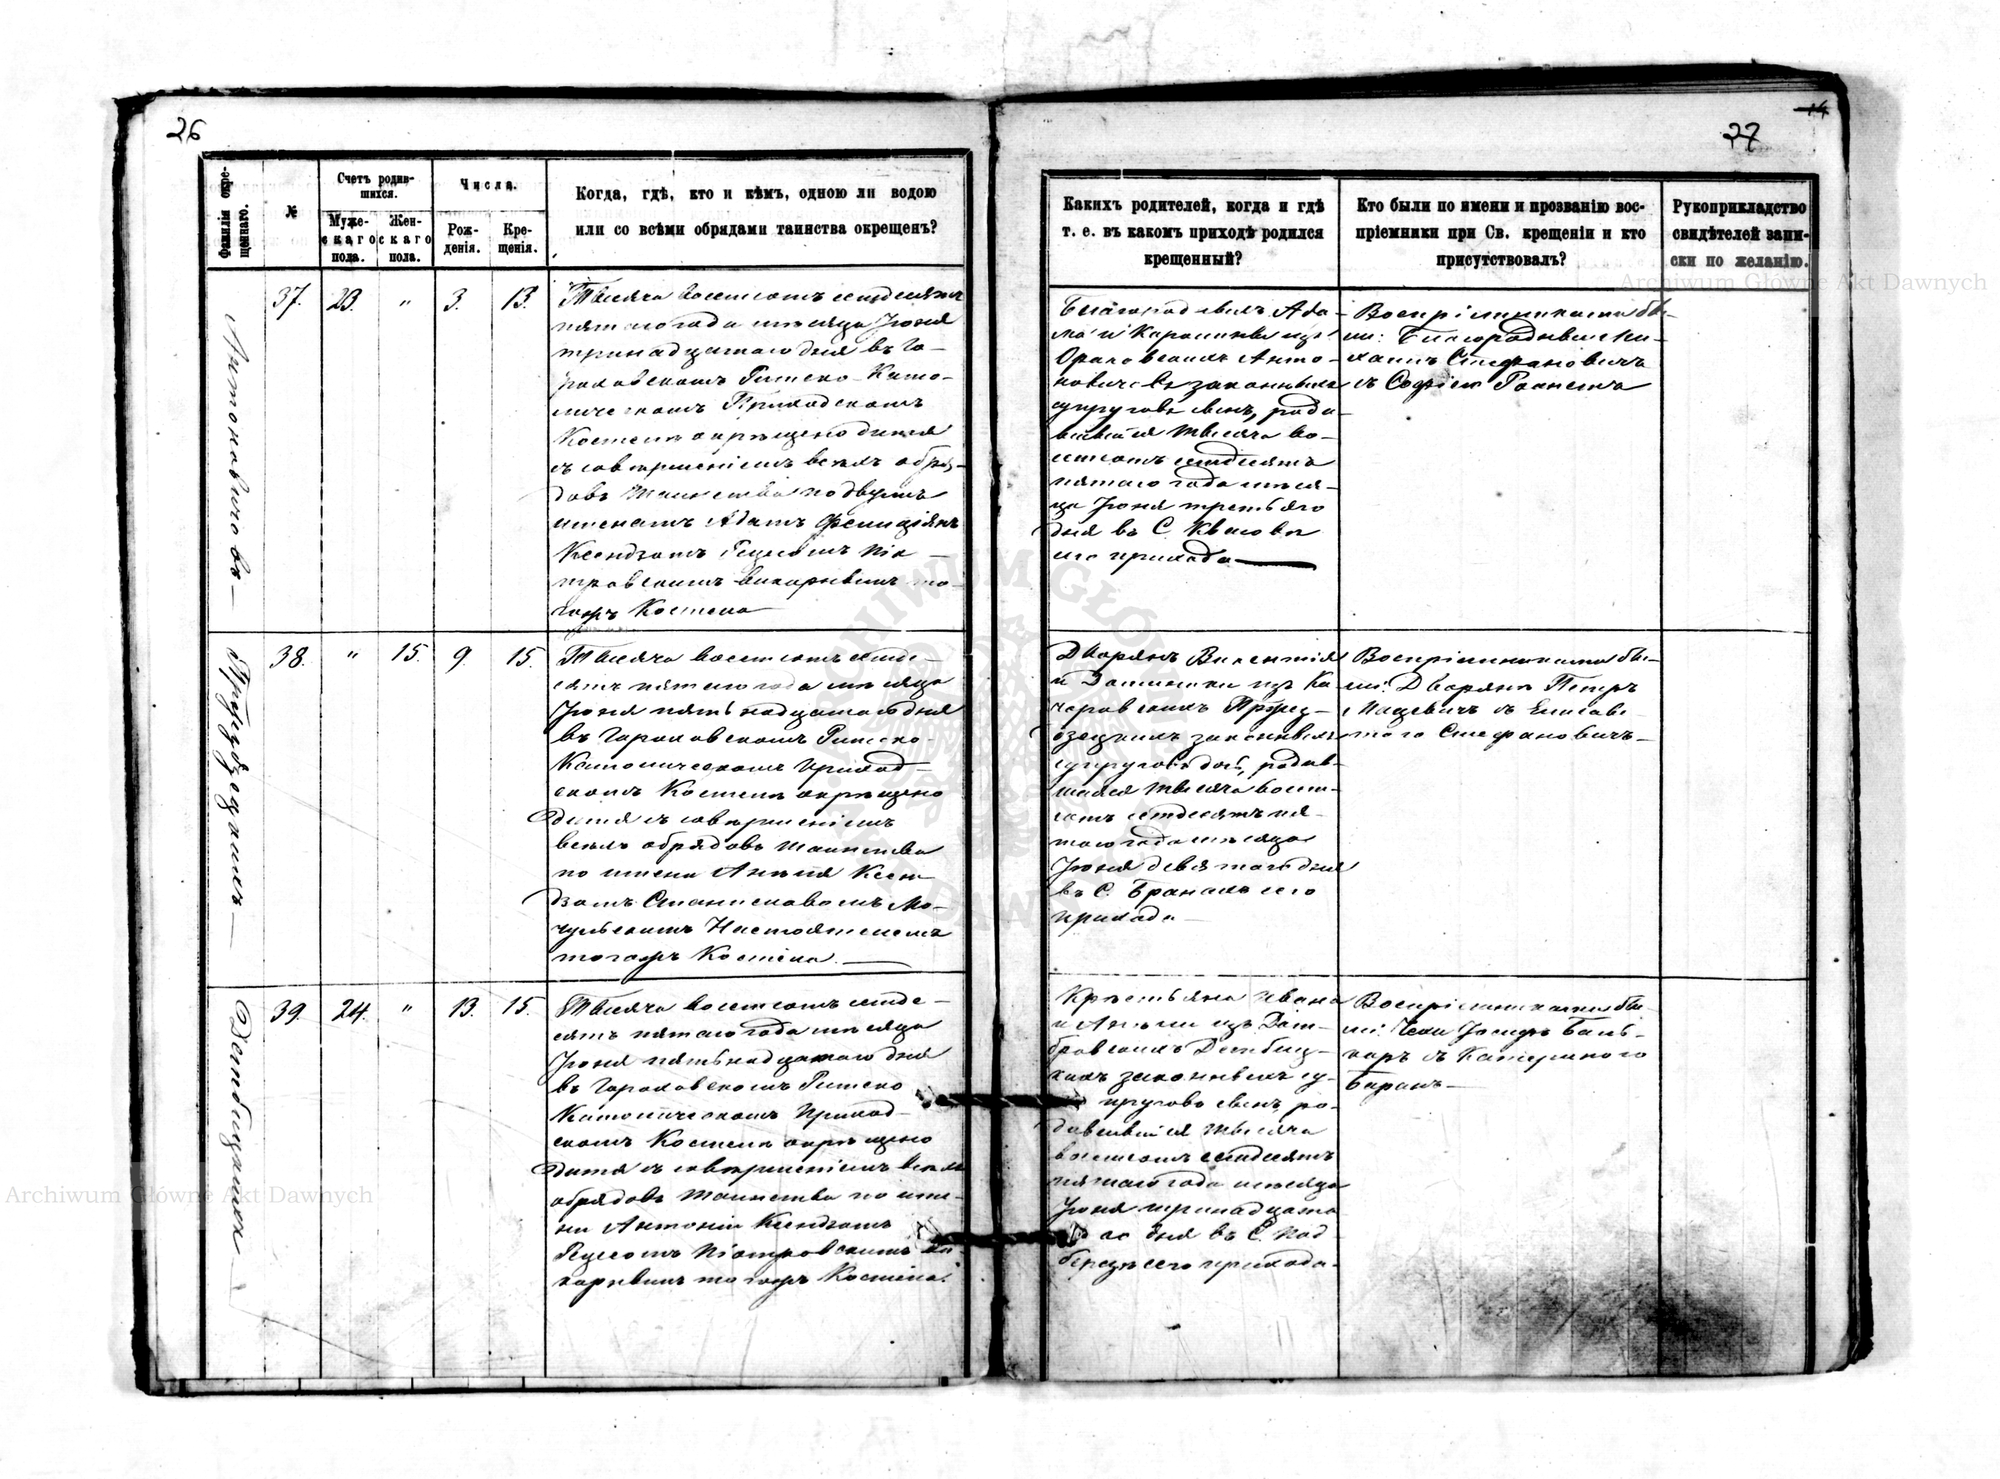 26
Фамилія окре-
щеннаго.
№
Счетъ родив-
шихся.
Муже-
скаго
пола.
Жен-
скаго
пола.
Числа.
Рож-
денія.
Кре-
щенія.
Когда, гдѣ, кто и кѣмъ, одною ли водою
или со всѣми обрядами таинства окрещенъ?
37. 23. " 3. 13.
Тысяча восемьсотъ семдесятъ
пятаго года мѣсяца Іюня
тринадцатаго дня въ Го-
роховскомъ Римско-Като-
лическомъ Приходскомъ
Костелѣ окрѣщено дитя
съ совершеніемъ всѣхъ обря-
довъ Таинства по двумъ
именамъ Адамъ Фелиціянъ
Ксендзомъ
тровскимъ викарнымъ то-
гожъ Костела
38. " 15. 9. 15.
Тысяча восемсотъ семде-
сятъ пятаго года мѣсяца
Іюня пятьнадцатаго дня
въ Гороховскомъ Римско-
Католическомъ Приход-
скомъ Костелѣ окрѣщено
дитя съ совершеніемъ
всѣхъ обрядовъ Таинства
по имени Анѣля Ксен-
дзомъ Станиславомъ Мо-
чульскимъ Настоятелемъ
тогожъ Костела.
39. 24. " 13. 15.
Тысяча восемсотъ семде-
сятъ пятаго года мѣсяца
Іюня пятьнадцатаго дня
въ Гороховскомъ Римско
Католическомъ Приход-
скомъ Костелѣ окрѣщено
дитя съ совершеніемъ всѣхъ
обрядовъ Таинства по име-
ни Антоній Ксендзомъ
Піотровскимъ ви-
карнымъ тогожъ Костела.
27
14
Какихъ родителей, когда и гдѣ
т. е. въ какомъ приходѣ родился
крещенный?
Кто были по имени и прозванію вос-
пріемники при Св. крещеніи и кто
присутствовалъ?
Рукоприкладство
свидѣтелей запи-
ски по желанію.
Благородныхъ Ада-
ма и Каролины изъ
Ораховскихъ Анто-
новичовъ законныхъ
супруговъ сынъ, роди-
вшійся тысяча во-
семсотъ семдесятъ
пятаго года мѣся-
ца Іюня третьяго
дня въ С.
его прихода
Воспріемниками бы-
ли: Благородные Ми-
хаилъ Стефановичъ
съ Софіею
Дворянъ Викентія
и Доминики изъ Ка-
чаровскихъ
законныхъ
супруговъ дочь, родив-
шаяся тысяча восем-
сотъ семдесятъ пя-
таго года мѣсяца
Іюня девятаго дня
въ С. Бранахъ сего
прихода
Воспріемниками бы-
ли: Дворяне Петръ
Мацевичъ съ Елисаве-
тою Стефановичъ
Крестьянъ Ивана
и Анны изъ Дом-
бровскихъ Дембиц-
кихъ законныхъ су-
пруговъ сынъ, ро-
дившійся тысяча
восемсотъ семдесятъ
пятаго года мѣсяца
Іюня тринадцата-
го дня въ С. Под-
березѣ сего прихода.
Воспріемниками бы-
ли:
съ Катериною
Баранъ
Archiwum Główne Akt Dawnych
Archiwum Główne Akt Dawnych